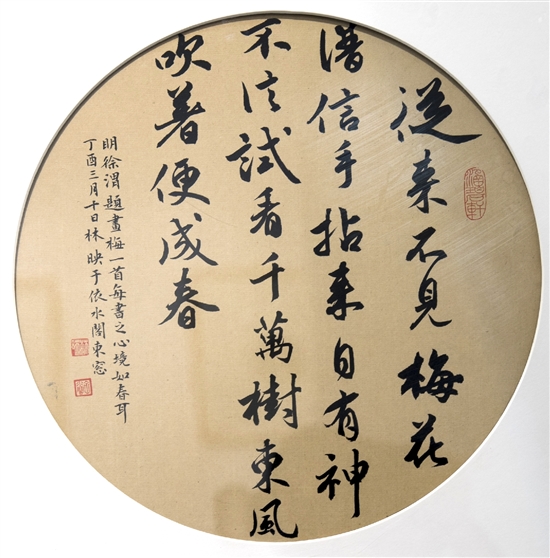 從來不見梅花
譜信手拈來自有神
不信試看千萬樹東風
吹着便成春
明徐渭題畫梅一首每書之心境如春耳
丁酉三月十日林映于依水閣東窓